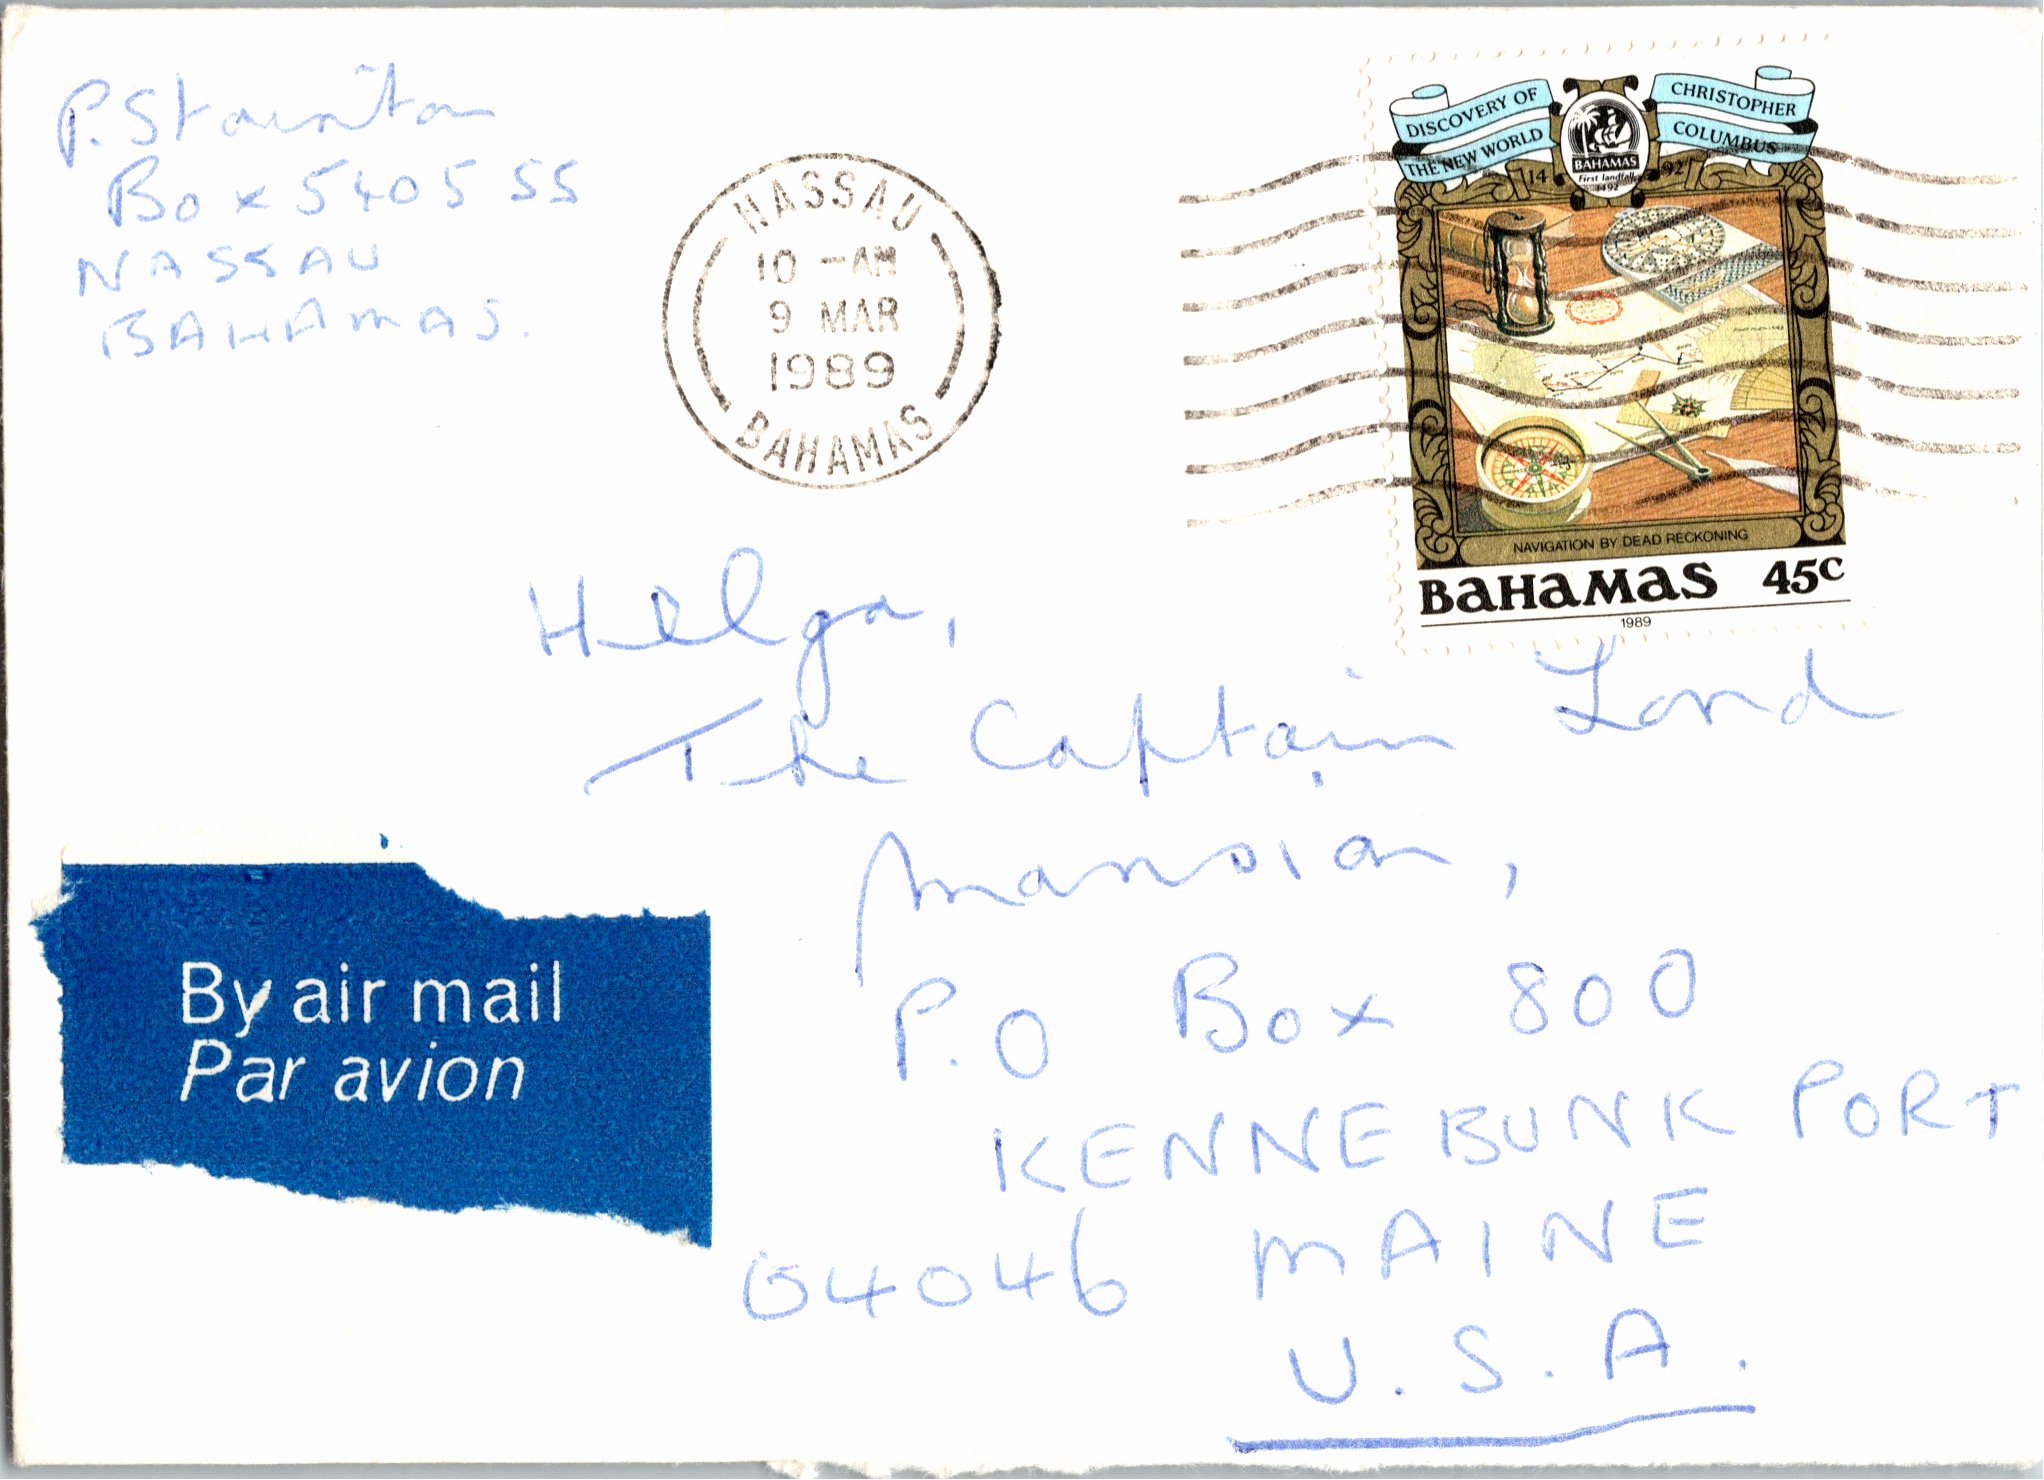 P. Staunton
Box 5405 SS
NASSAU
BAHAMAS.
NASSAU
10 - AM
9 MAR
1989
BAHAMAS
DISCOVERY OF
THE NEW WORLD
CHRISTOPHER
COLUMBUS
BAHAMAS
First landfall
1492
14 92
NAVIGATION BY DEAD RECKONING
BAHAMAS 45c
1989
Helga,
The Captain Lord
Mansion,
P.O Box 800
KENNEBUNK PORT
04046 MAINE
U.S.A.
By air mail
Par avion